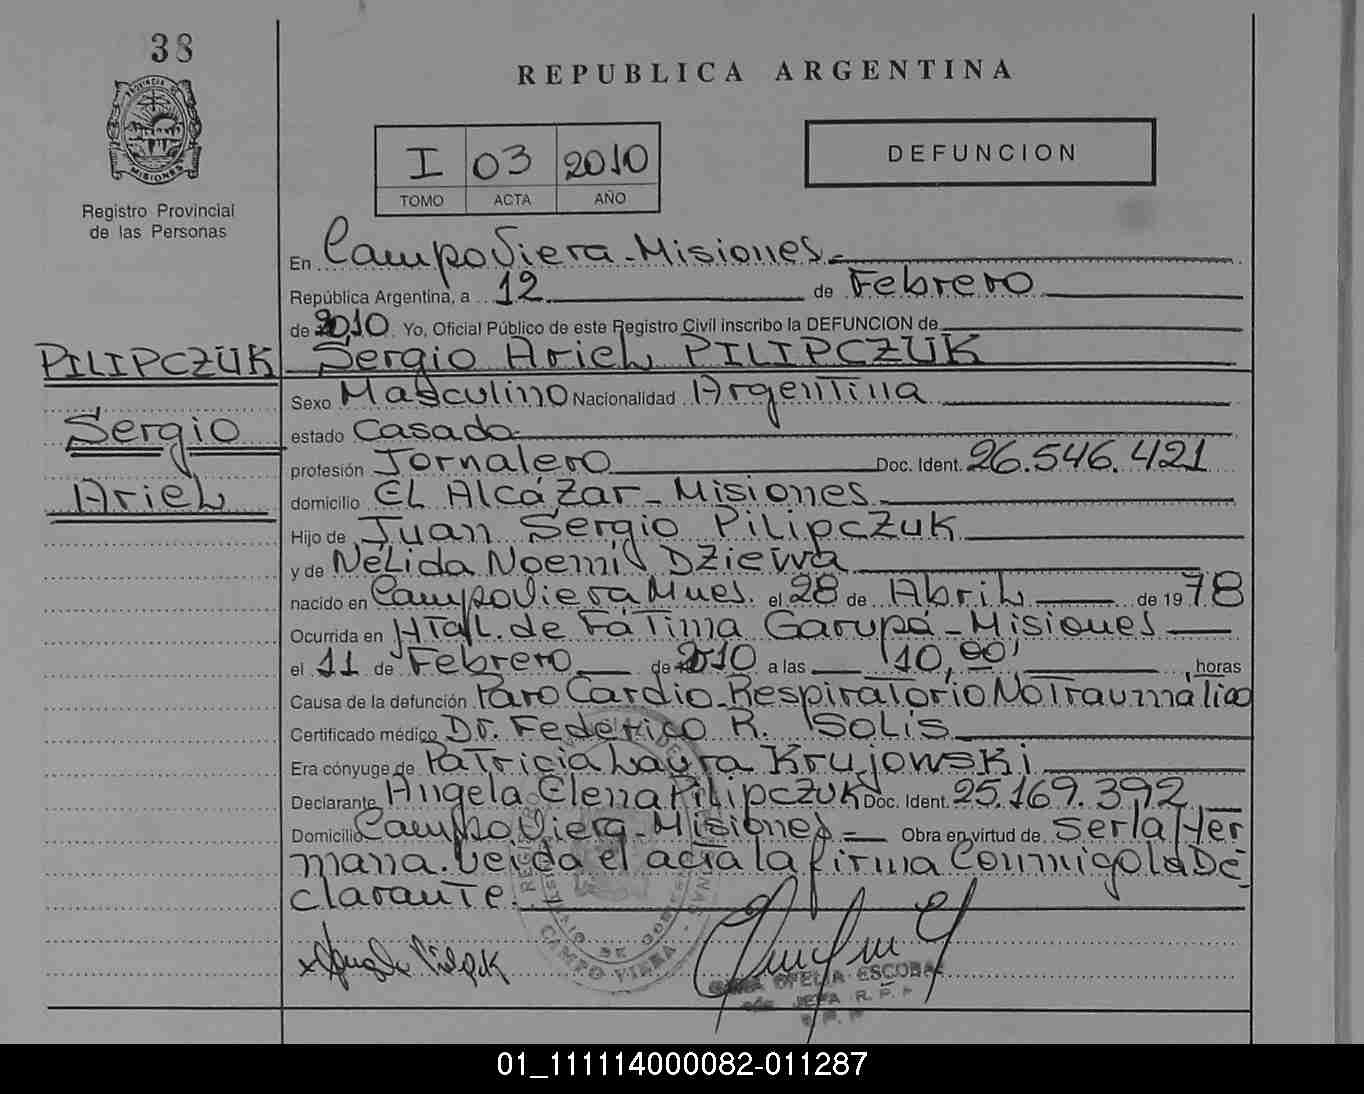 38
PROVINCIA DE
MISIONES
Registro Provincial
de las Personas
REPUBLICA ARGENTINA
I 03 2010
TOMO ACTA AÑO
DEFUNCION
En Campo Viera - Misiones.
República Argentina, a 12 de Febrero
de 2010 Yo, Oficial Público de este Registro Civil inscribo la DEFUNCION de
PILIPCZUK Sergio Ariel PILIPCZUK
Sexo Masculino Nacionalidad Argentina
Sergio
estado Casado.
profesión Jornalero Doc. Ident. 26.546.421
Ariel
domicilio El Alcázar - Misiones
Hijo de Juan Sergio Pilipczuk
y de Nélida Noemí Dziewa
nacido en Campo Viera Mnes. el 28 de Abril de 1978
Ocurrida en Htal. de Fátima Garupá - Misiones
el 11 de Febrero de 2010 a las 10,00 horas
Causa de la defunción Paro Cardio-Respiratorio No Traumático
Certificado médico Dr. Federico R. Solis
Era cónyuge de Patricia Laura Krujowski
Declarante Angela Elena Pilipczuk Doc. Ident. 25.169.392
Domicilio Campo Viera - Misiones Obra en virtud de Ser la Her
mana. Leida el acta la firma Conmigo la De
clarante.
CAMPO VIERA
OFELIA ESCOBAR
JEFA R.P.P.
01_111114000082-011287